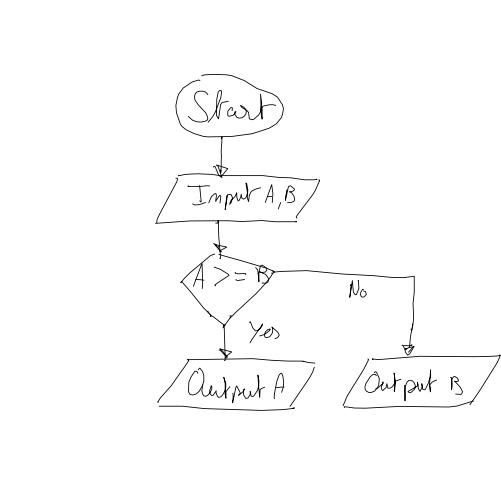 Start
Input A,B
A >= B
No
Yes
Output A
Output B